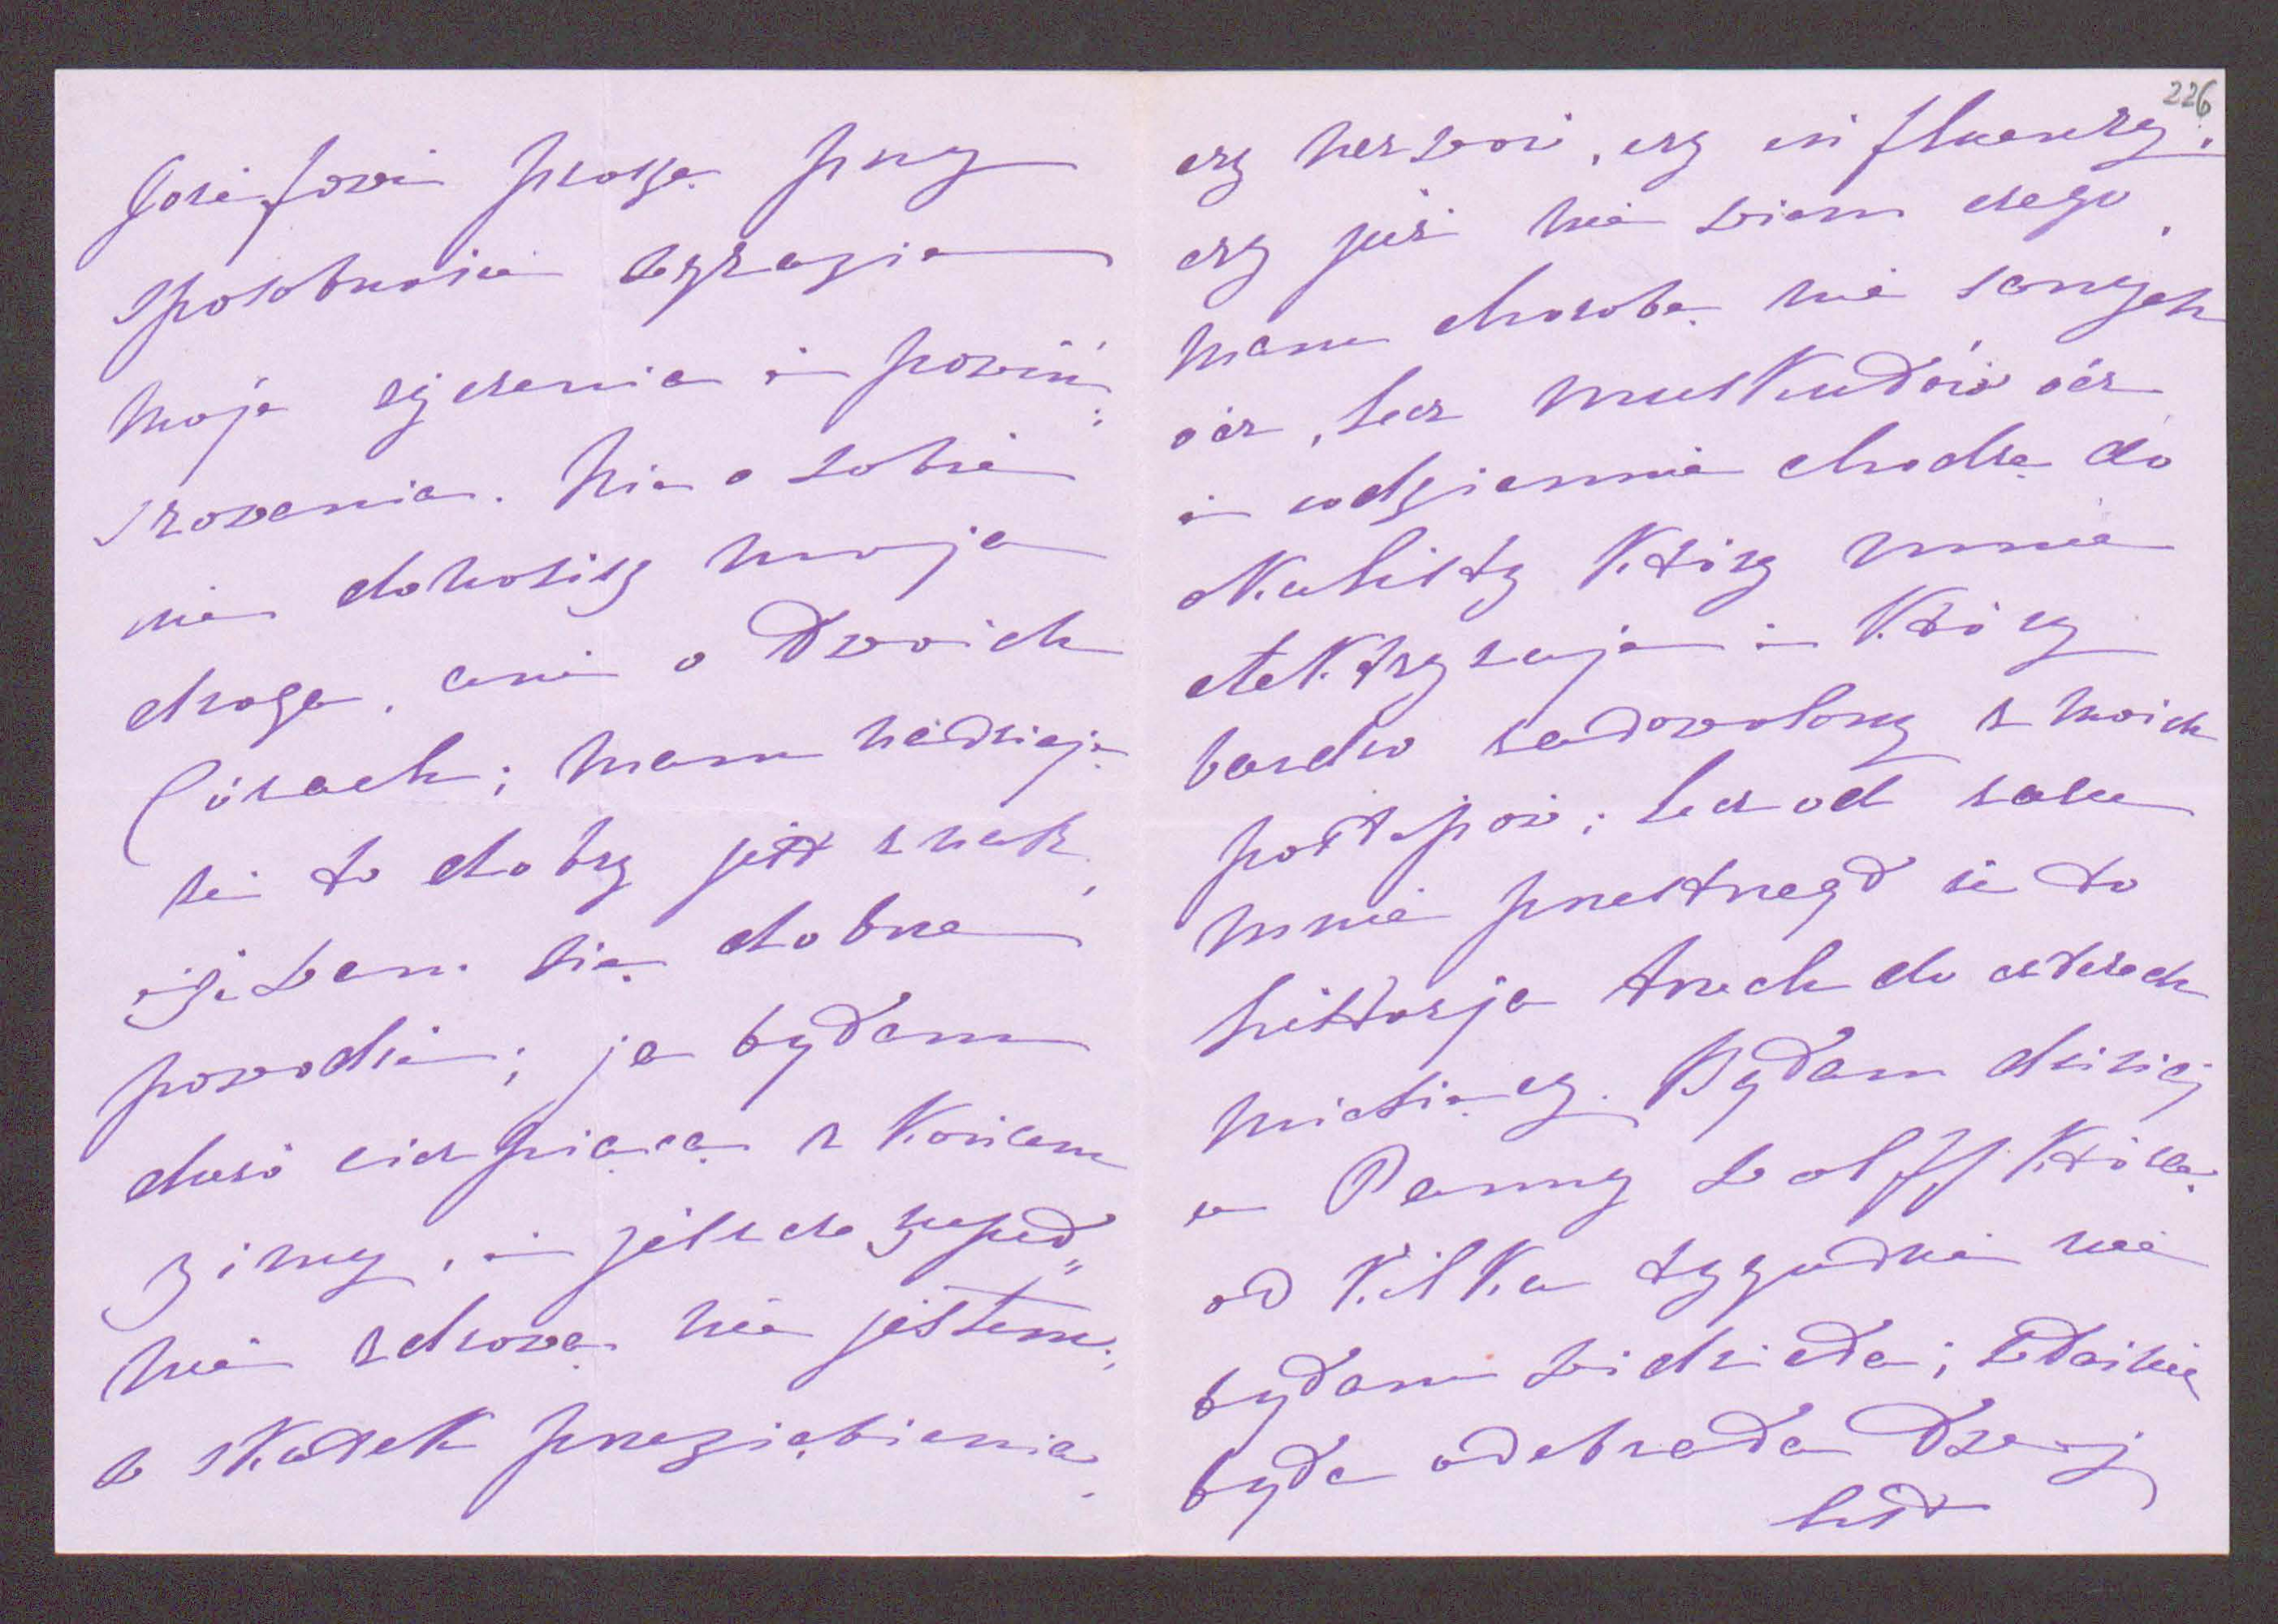 Józefowi proszę przy
sposobności wyrazić
moje życzenia i powin-
szowania. Nic o sobie
nie donosisz moja
droga, ani o Twoich
Córach; mam nadzieję
że to dobry jest znak,
iże Wam się dobrze
powodzi; ja byłam
dość cierpiącą z końcem
zimy, i jeszcze zupeł„
nie zdrową nie jestem;
w skutek przeziębienia
226
czy nerwów, czy influenzy,
czy już nie wiem czego,
mam chorobę nie samych
ócz, lecz muskułów ócz
i codziennie chodzę do
okulisty który mnie
elektryzuje i który
bardzo zadowolony z moich
postępów; lecz od razu
mnie przestrzegł że to
historja trzech do czterech
miesięcy. Byłam dzisiaj
u Panny Wolff którą
od kilku tygodni nie
byłam widziała; właśnie
była odebrała Twój
list